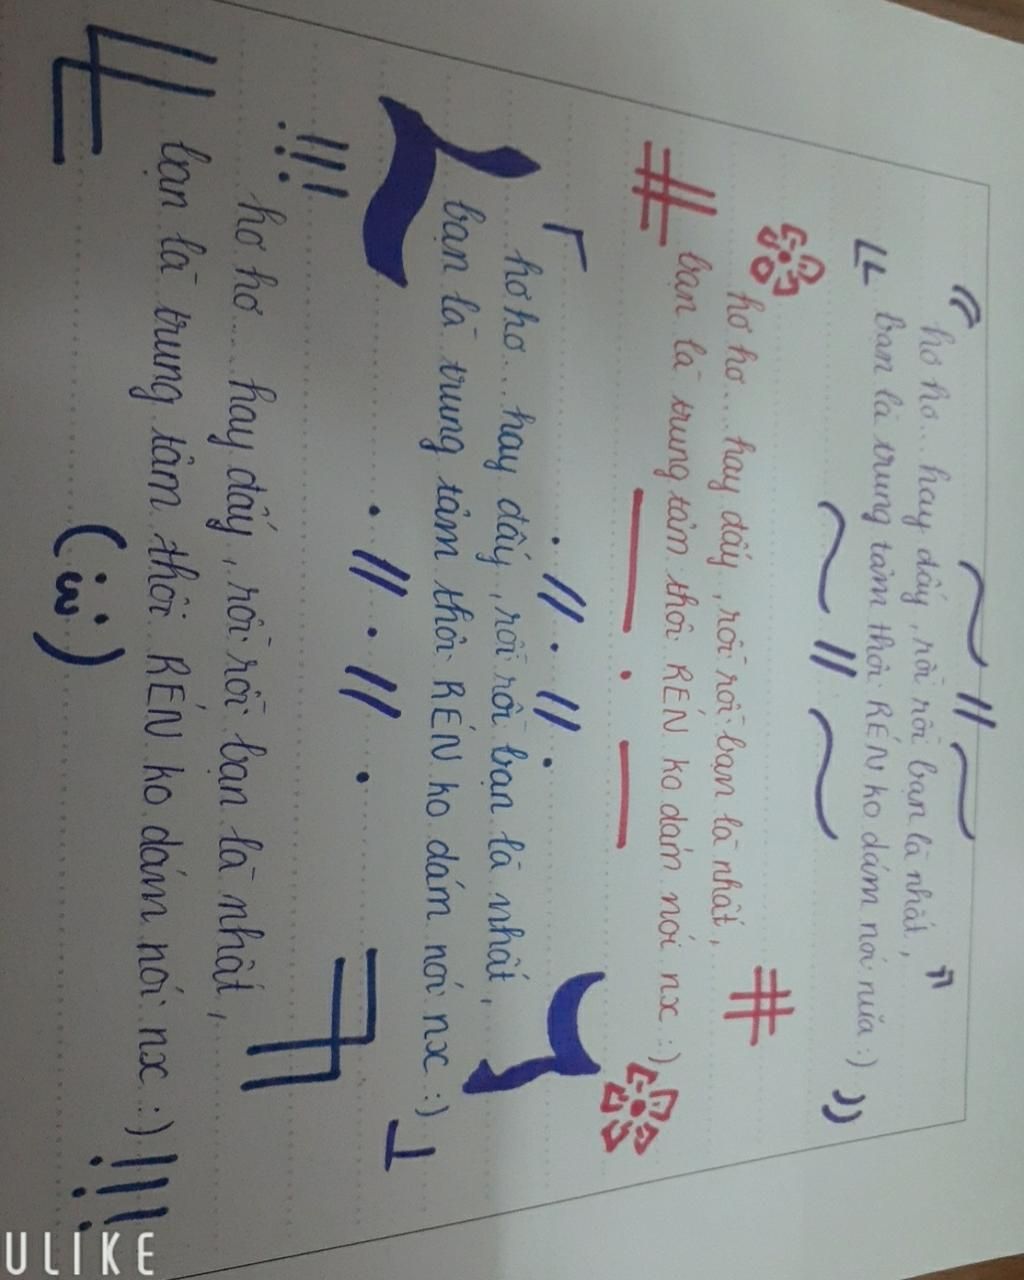 hơ hơ... hay đấy, rồi rồi bạn là nhất,
bạn là trung tâm thôi RÉN ko dám nói nữa :)
hơ hơ... hay đấy, rồi rồi bạn là nhất,
bạn là trung tâm thôi RÉN ko dám nói nx :)
hơ hơ... hay đấy, rồi rồi bạn là nhất,
bạn là trung tâm thôi RÉN ko dám nói nx :)
!!!
hơ hơ... hay đấy, rồi rồi bạn là nhất,
bạn là trung tâm thôi RÉN ko dám nói nx :) !!!
ULIKE